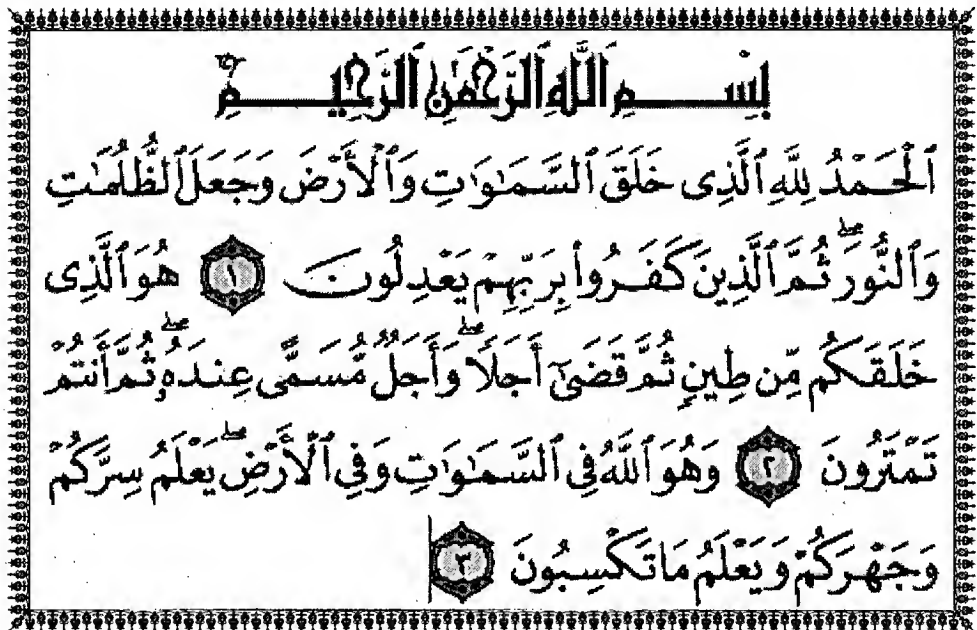 بِسْمِ ٱللَّهِ ٱلرَّحْمَٰنِ ٱلرَّحِيمِ
ٱلْحَمْدُ لِلَّهِ ٱلَّذِى خَلَقَ ٱلسَّمَٰوَٰتِ وَٱلْأَرْضَ وَجَعَلَ ٱلظُّلُمَٰتِ
وَٱلنُّورَ ۖ ثُمَّ ٱلَّذِينَ كَفَرُوا۟ بِرَبِّهِمْ يَعْدِلُونَ ١ هُوَ ٱلَّذِى
خَلَقَكُم مِّن طِينٍ ثُمَّ قَضَىٰٓ أَجَلًا ۖ وَأَجَلٌ مُّسَمًّى عِندَهُۥ ۖ ثُمَّ أَنتُمْ
تَمْتَرُونَ ٢ وَهُوَ ٱللَّهُ فِى ٱلسَّمَٰوَٰتِ وَفِى ٱلْأَرْضِ ۖ يَعْلَمُ سِرَّكُمْ
وَجَهْرَكُمْ وَيَعْلَمُ مَا تَكْسِبُونَ ٣